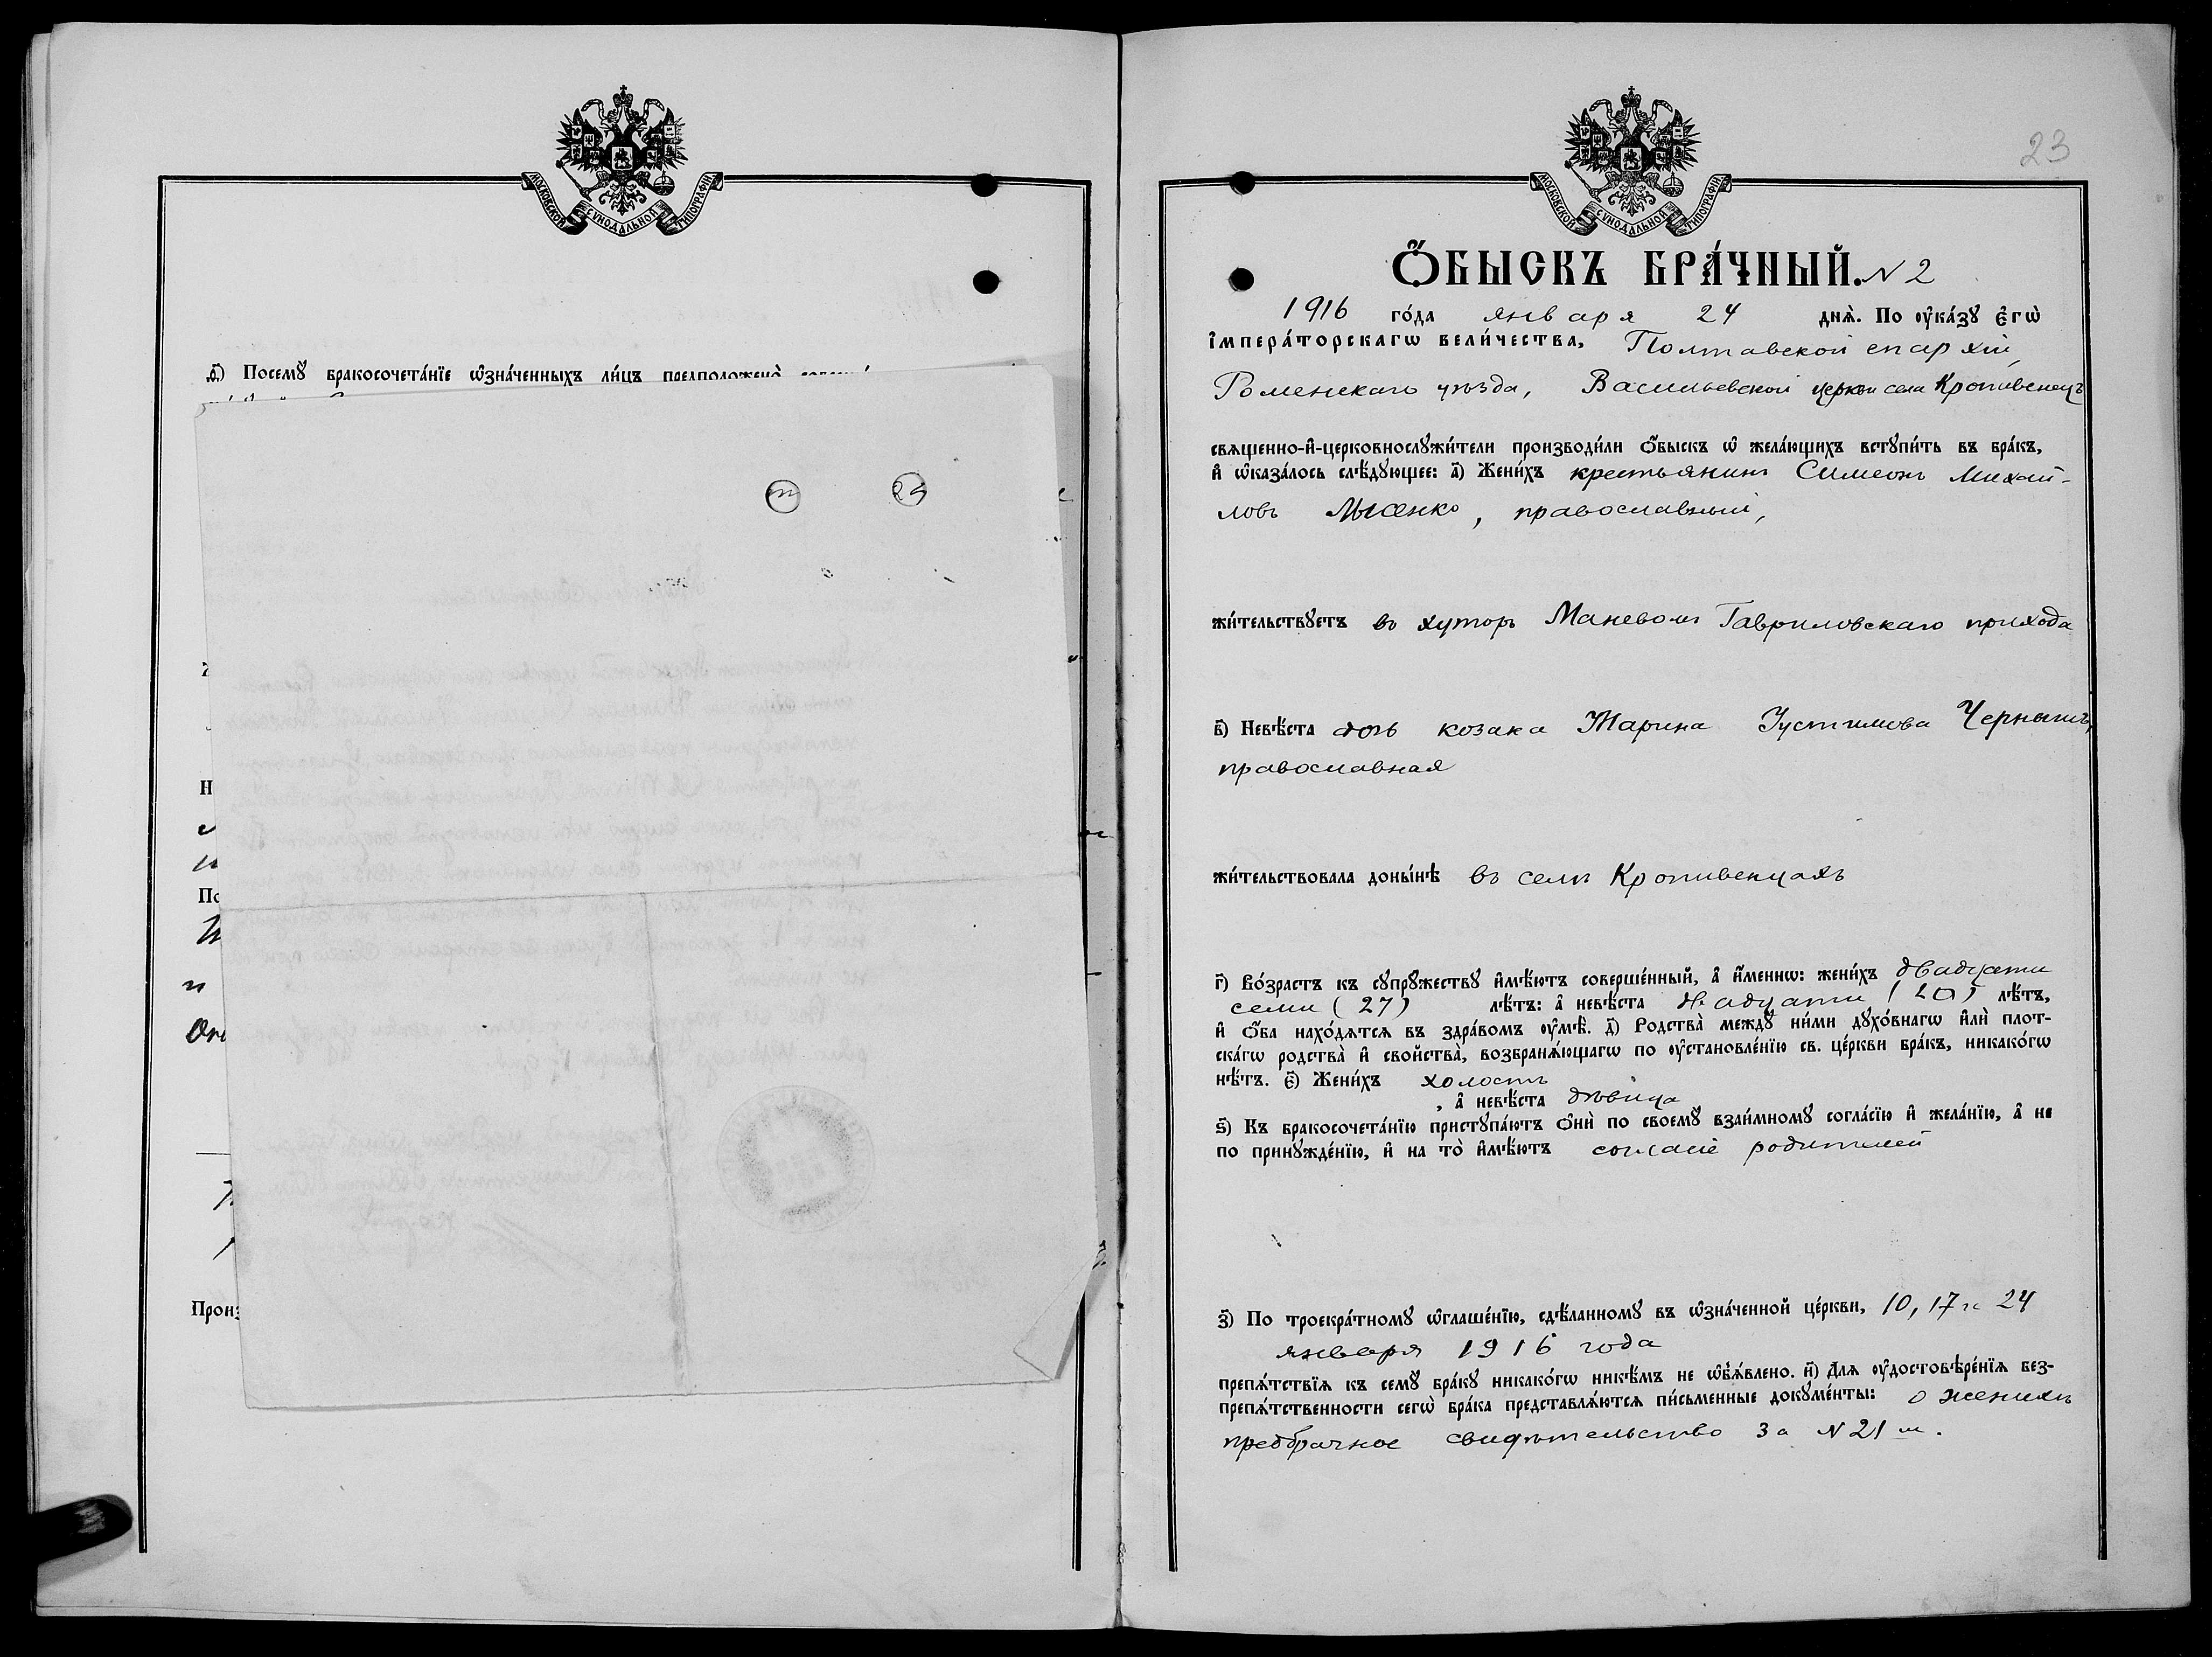 МОСКОВСКОЙ СУНОДАЛЬНОЙ ТИПОГРАФІИ
ѳ҃) Посемꙋ̀ бракосочета́нїе ѡ҆зна́ченныхъ ли́цъ предположено̀
Н
По
Произ
23
МОСКОВСКОЙ СУНОДАЛЬНОЙ ТИПОГРАФІИ
Ѻ҆́БЫСКЪ БРА́ЧНЫЙ. N 2
1916 го́да января 24 днѧ̀. По ᲂу҆ка́зꙋ є҆гѡ̀
і҆мпера́торскагѡ вели́чества, Полтавской епархіи,
Роменскаго уѣзда, Васильевской церкви села Кропивенецъ
свѧщенно-и҆-церковнослꙋжи́тели производи́ли ѻ҆́быскъ ѡ҆ жела́ющихъ встꙋпи́ть въ бра́къ,
и҆ ѡ҆каза́лось слѣ́дꙋющее: а҃) Жени́хъ крестьянинъ Симеонъ Михай-
ловъ Лысенко, православный,
жи́тельствꙋетъ въ хуторѣ Маневомъ Гавриловскаго прихода
в҃) Невѣ́ста дочь козака Марина Іустимова Чернышъ,
православная
жи́тельствовала доны́нѣ въ селѣ Кропивенцахъ
г҃) Во́зрастъ къ сꙋпрꙋ́жествꙋ и҆мѣ́ютъ соверше́нный, а҆ и҆́меннѡ: жени́хъ двадцати
семи (27) лѣ́тъ: а҆ невѣ́ста двадцати (20) лѣ́тъ,
и҆ ѻ҆́ба нахо́дѧтсѧ въ здра́вомъ ᲂу҆мѣ̀. д҃) Родства̀ междꙋ̀ ни́ми дꙋхо́внагѡ и҆лѝ плот-
ска́гѡ родства̀ и҆ свойства̀, возбранѧ́ющагѡ по ᲂу҆становле́нїю св. це́ркви бра́къ, никако́гѡ
нѣ́тъ. є҃) Жени́хъ холостъ
, а҆ невѣ́ста дѣвица
ѕ҃) Къ бракосочета́нїю пристꙋпа́ютъ ѻ҆нѝ по своемꙋ̀ взаи́мномꙋ согла́сїю и҆ жела́нїю, а҆ не
по принꙋжде́нїю, и҆ на то̀ и҆мѣ́ютъ согласіе родителей
з҃) По троекра́тномꙋ ѡ҆глаше́нїю, сдѣ́ланномꙋ въ ѡ҆зна́ченной це́ркви, 10, 17 и 24
января 1916 года
препѧ́тствїѧ къ семꙋ̀ бра́кꙋ никако́гѡ никѣ́мъ не ѡ҆б̾ѧ́влено. и҃) Длѧ ᲂу҆достовѣре́нїѧ без-
препѧ́тственности сегѡ̀ бра́ка представлѧ́ютсѧ пи́сьменные докꙋме́нты: о женихѣ
предбрачное свидѣтельство за N 21 м.